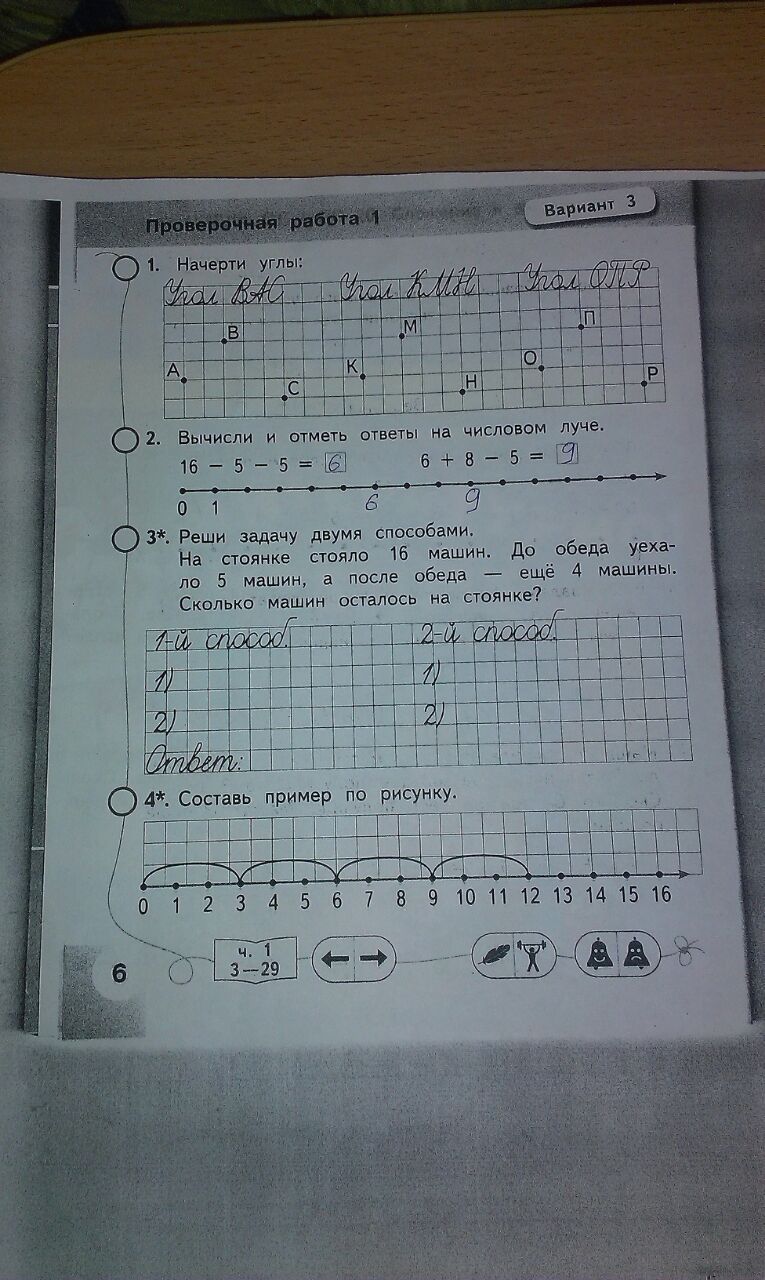 Проверочная работа 1
Вариант 3
1. Начерти углы:
Угол ВАС Угол КМН Угол ОПР
В М П
А К О
С Н Р
2. Вычисли и отметь ответы на числовом луче.
16 − 5 − 5 = 6 6 + 8 − 5 = 9
0 1 6 9
3*. Реши задачу двумя способами.
На стоянке стояло 16 машин. До обеда уеха-
ло 5 машин, а после обеда — ещё 4 машины.
Сколько машин осталось на стоянке?
1-й способ. 2-й способ.
1) 1)
2) 2)
Ответ:
4*. Составь пример по рисунку.
0 1 2 3 4 5 6 7 8 9 10 11 12 13 14 15 16
6
ч. 1
3—29